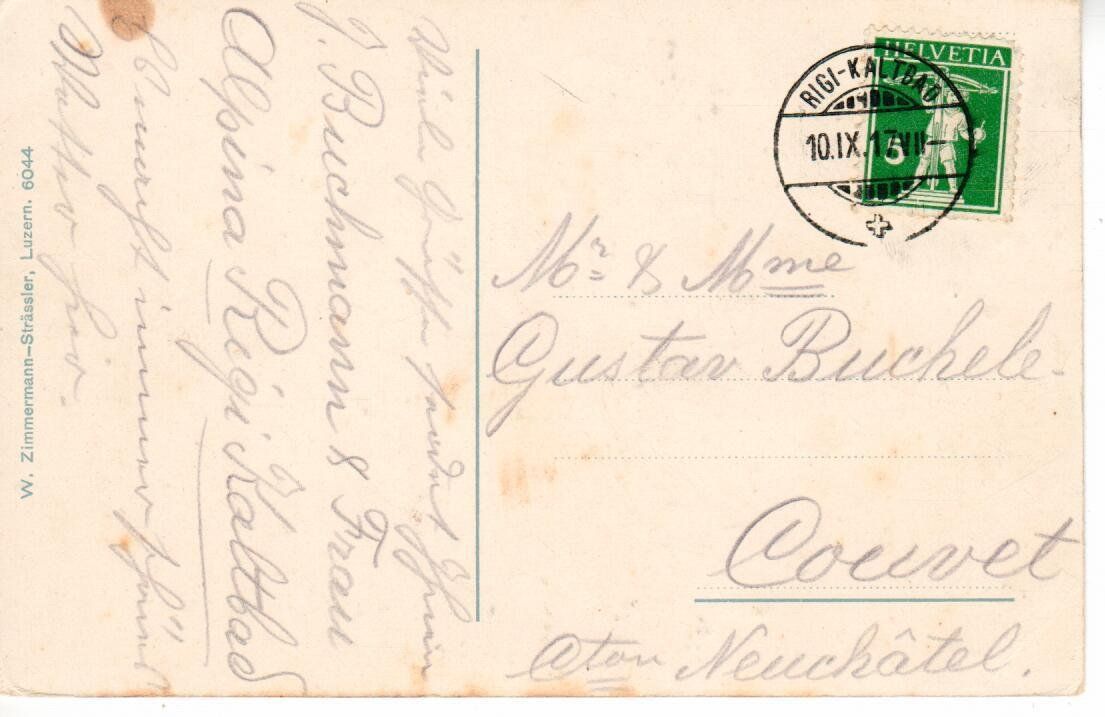 Viele Grüße sendet Ihnen
J. Buchmann & Frau
Alpina Rigi Kaltbad
immer schönes
Wetter hier.
W. Zimmermann-Strässler, Luzern. 6044
HELVETIA
5
RIGI-KALTBAD
10.IX.17.VII-
Mr & Mme
Gustav Buchele.
Couvet
Cton Neuchâtel.